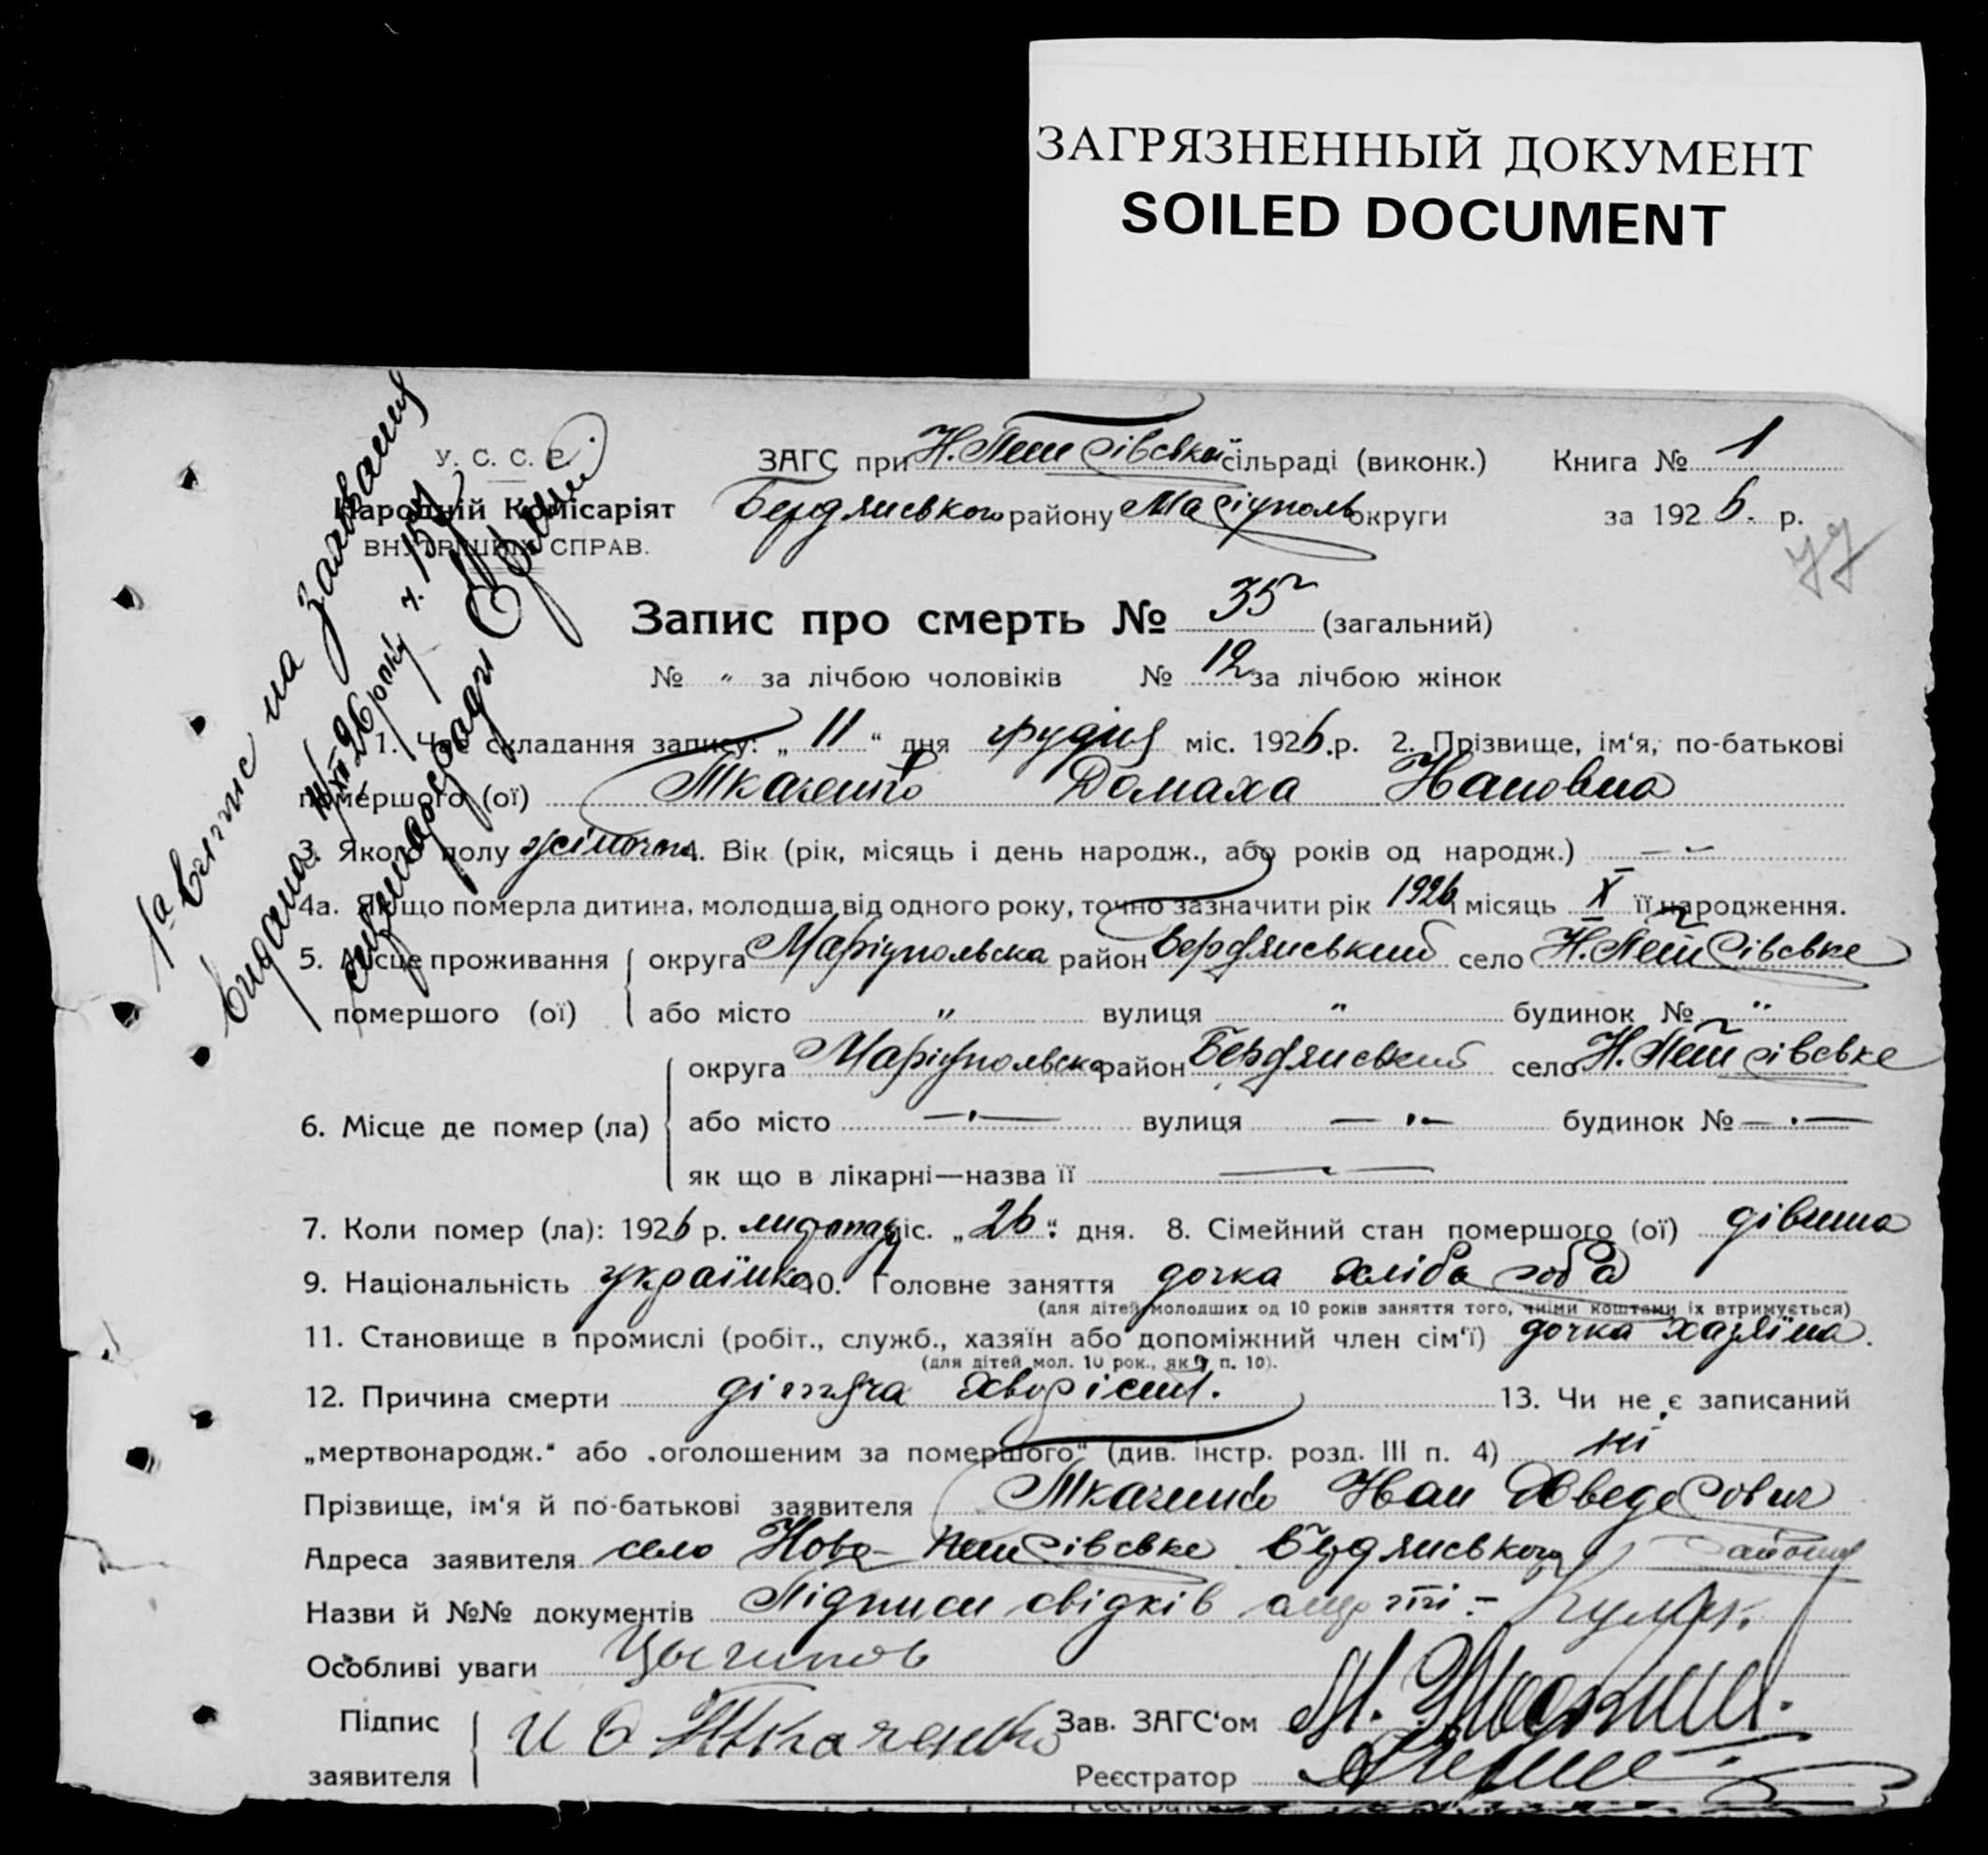 ЗАГРЯЗНЕННЫЙ ДОКУМЕНТ
SOILED DOCUMENT
У. С. С. Р.
Народній Комісаріят
ВНУТРІШНІХ СПРАВ.
ЗАГС при Н. Петрівській сільраді (виконк.) Книга № 1
Бердянського району Маріуполь округи за 1926. р.
Запис про смерть № 35 (загальний)
№ " за лічбою чоловіків № 12 за лічбою жінок
1. Час складання запису: „ 11 " дня грудня міс. 1926.р. 2. Прізвище, ім'я, по-батькові
помершого (ої) Ткаченко Домаха Ивановна
3. Якого полу жіночого 4. Вік (рік, місяць і день народж., або років од народж.) —
4а. Якщо померла дитина, молодша від одного року, точно зазначити рік 1926 місяць X її народження.
5. Місце проживання помершого (ої) округа Маріупольска район Бердянський село Н. Петрівське
або місто " вулиця " будинок № "
6. Місце де помер (ла) округа Маріупольска район Бердянський село Н. Петрівське
або місто — · — вулиця — · — будинок № — · —
як що в лікарні—назва її —
7. Коли помер (ла): 1926 р. листопад міс. „ 26 " дня. 8. Сімейний стан помершого (ої) дівчина
9. Національність українка 10. Головне заняття дочка хлібороба
(для дітей молодших од 10 років заняття того, чиїми коштами їх втримується)
11. Становище в промислі (робіт., служб., хазяїн або допоміжний член сім'ї) дочка хазяїна.
(для дітей мол. 10 рок., як у п. 10).
12. Причина смерти дітяча хворість. 13. Чи не є записаний
„мертвонародж." або „оголошеним за помершого" (див. інстр. розд. III п. 4) ні
Прізвище, ім'я й по-батькові заявителя Ткаченко Иван Хведорович
Адреса заявителя село Ново-Петрівське Бердянського району
Назви й №№ документів Підписи свідків
Особливі уваги
Підпис заявителя И Ф Ткаченко Зав. ЗАГС'ом
Реєстратор
1а випис на
видана 11/XII 26 року ч. 15